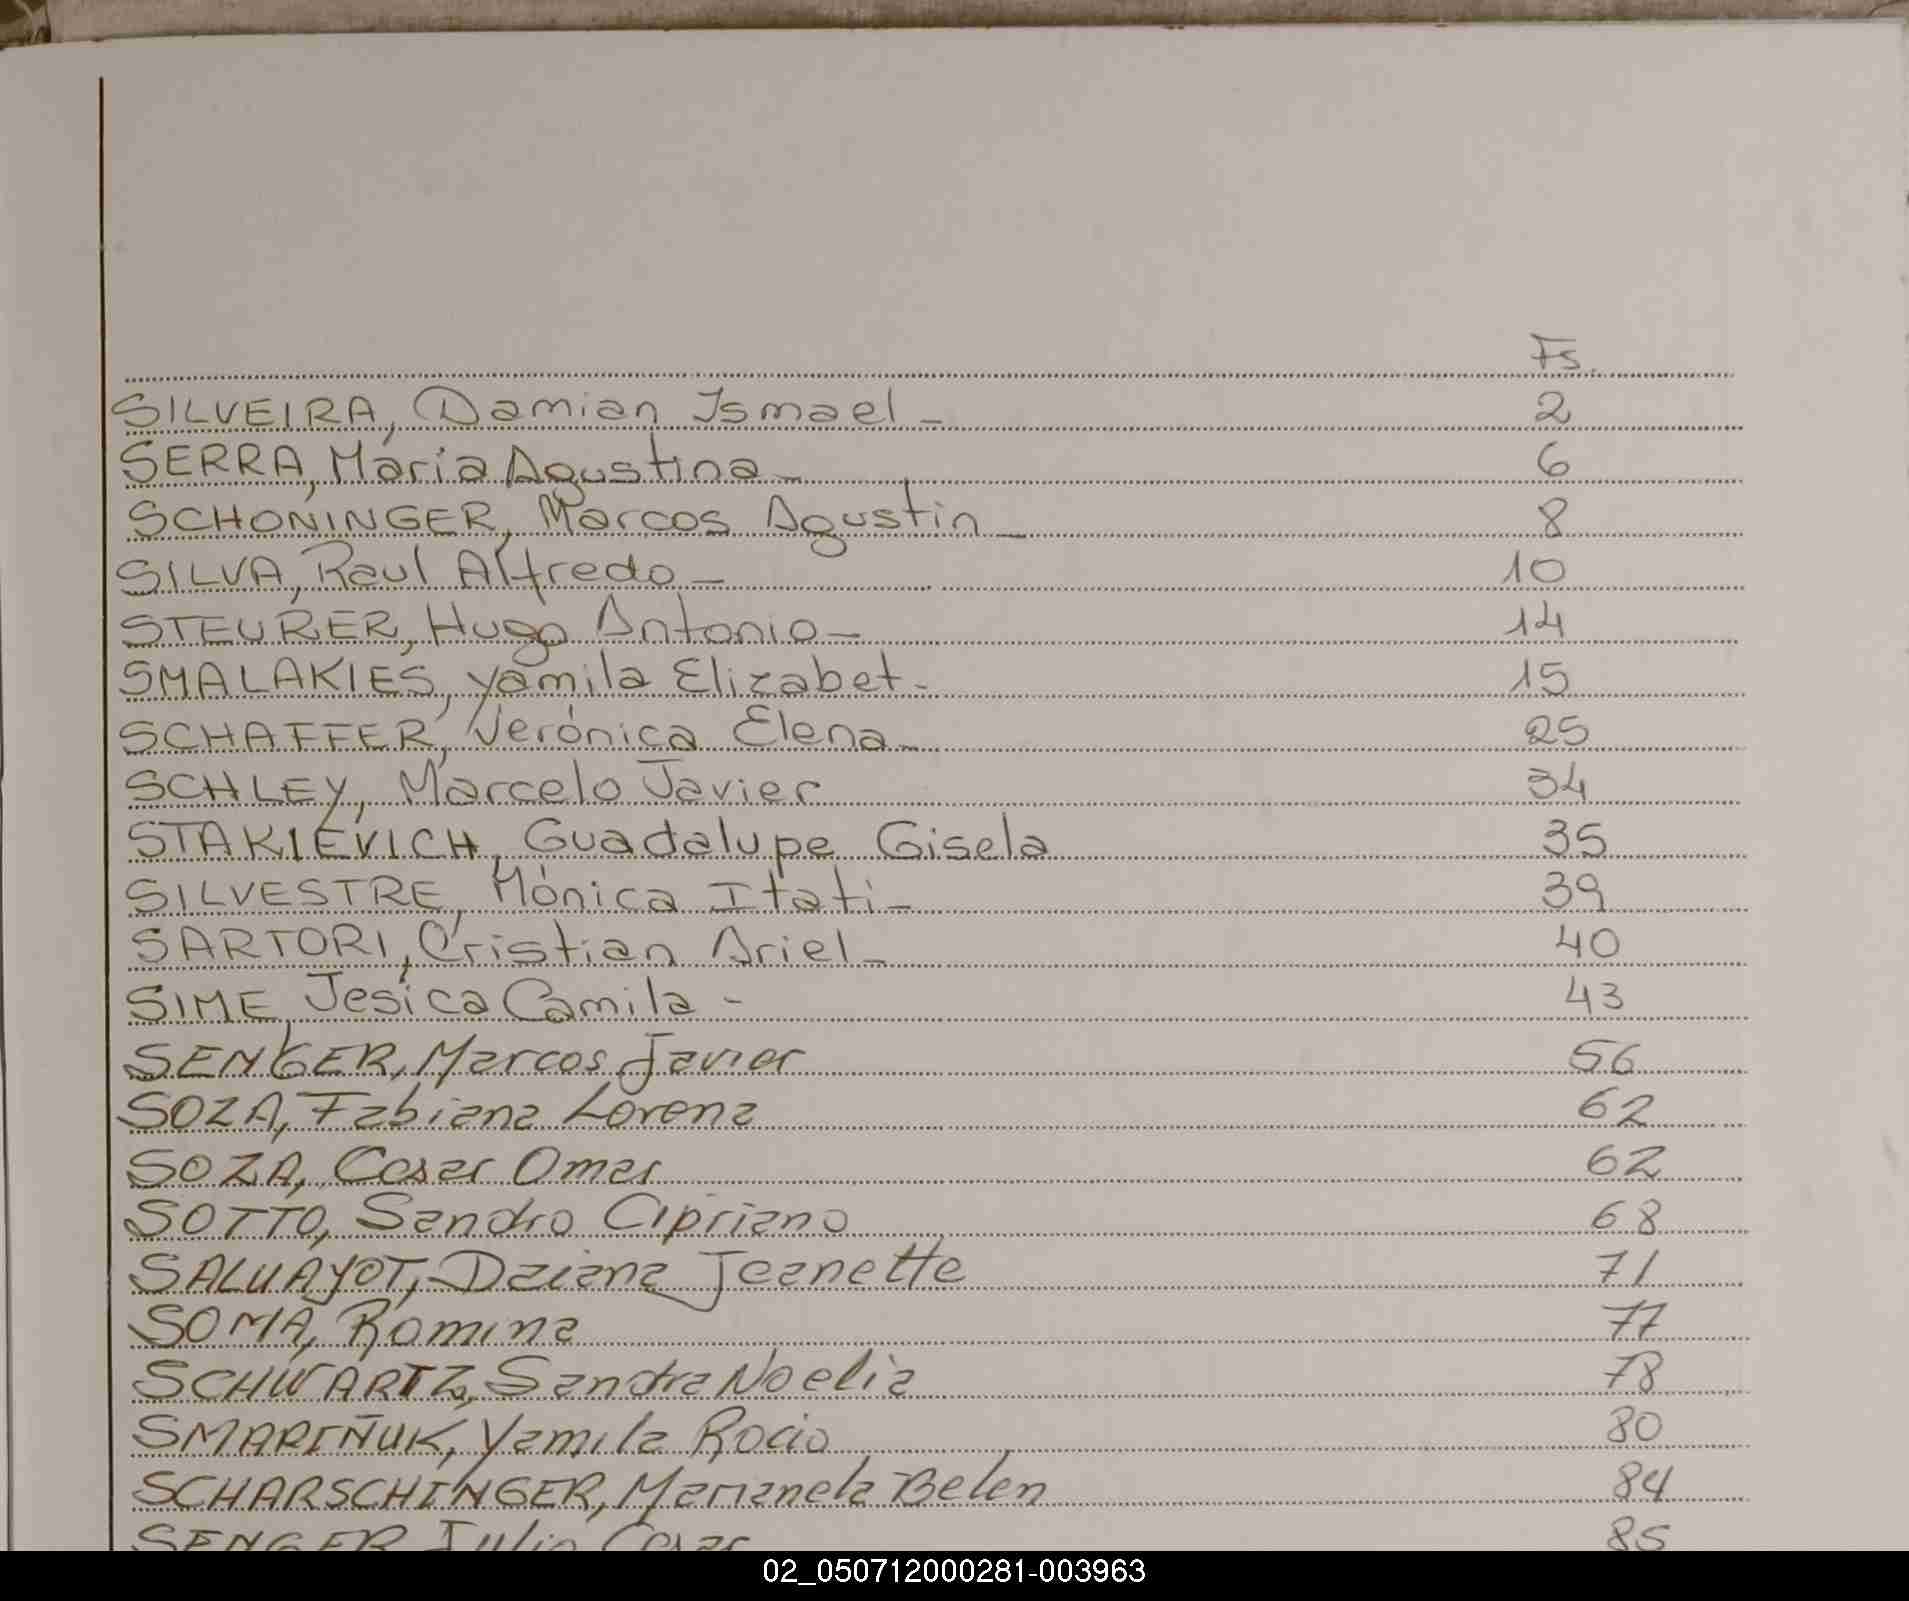 Fs.
SILVEIRA, Damian Ismael - 2
SERRA, Maria Agustina - 6
SCHONINGER, Marcos Agustin - 8
SILVA, Raul Alfredo - 10
STEURER, Hugo Antonio - 14
SMALAKIES, Yamila Elizabet - 15
SCHAFFER, Verónica Elena - 25
SCHLEY, Marcelo Javier 34
STAKIEVICH, Guadalupe Gisela 35
SILVESTRE, Mónica Itati - 39
SARTORI, Cristian Ariel - 40
SIME, Jesica Camila - 43
SENGER, Marcos Javier 56
SOZA, Fabiana Lorena 62
SOZA, Cesar Omar 62
SOTTO, Sandro Cipriano 68
SALUAYOT, Daiana Jeanette 71
SOMA, Romina 77
SCHWARTZ, Sandra Noelia 78
SMARIÑUK, Yamila Rocio 80
SCHARSCHINGER, Marianela Belen 84
SENGER Julio Cesar 85
02_050712000281-003963